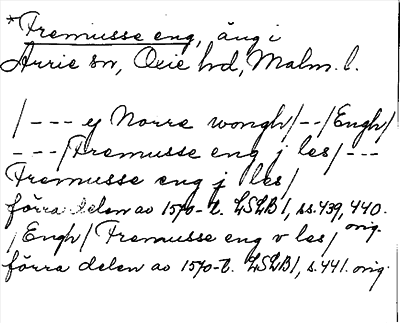 *Fremusse eng, äng i
Arrie sn, Oxie hd, Malm. l.
/--- ey Norre wongh/--/Engh/
---/Fremusse eng j les/---
Fremusse eng j les/
förra delen av 1570-t. LSLB1, ss. 439, 440.
orig.
/Engh/Fremusse eng v les/
förra delen av 1570-t. LSLB1, s. 441. orig.